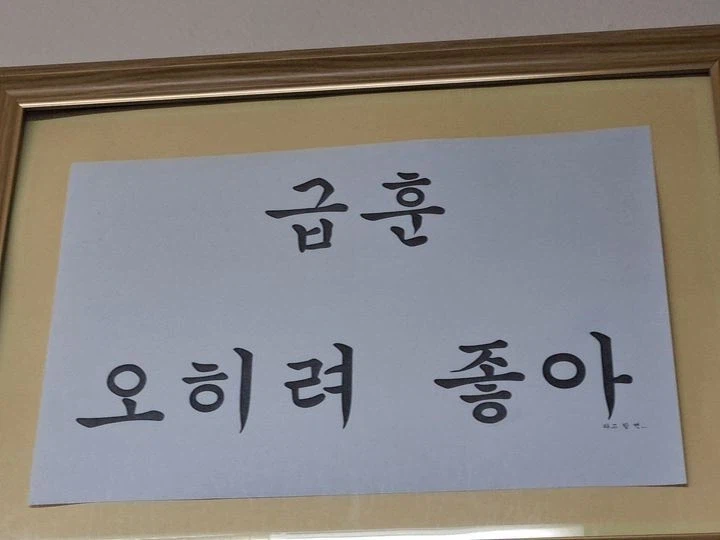 급훈
오히려 좋아